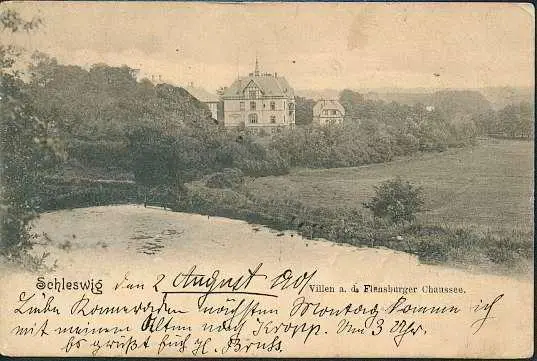 Schleswig den 2 August 901
Villen a. d. Flensburger Chaussee.
Liebe Kameraden nächsten Montag komme ich
mit meinen Alten nach Kropp. Um 3 Uhr.
Es grüßt Euch H. Bruhs